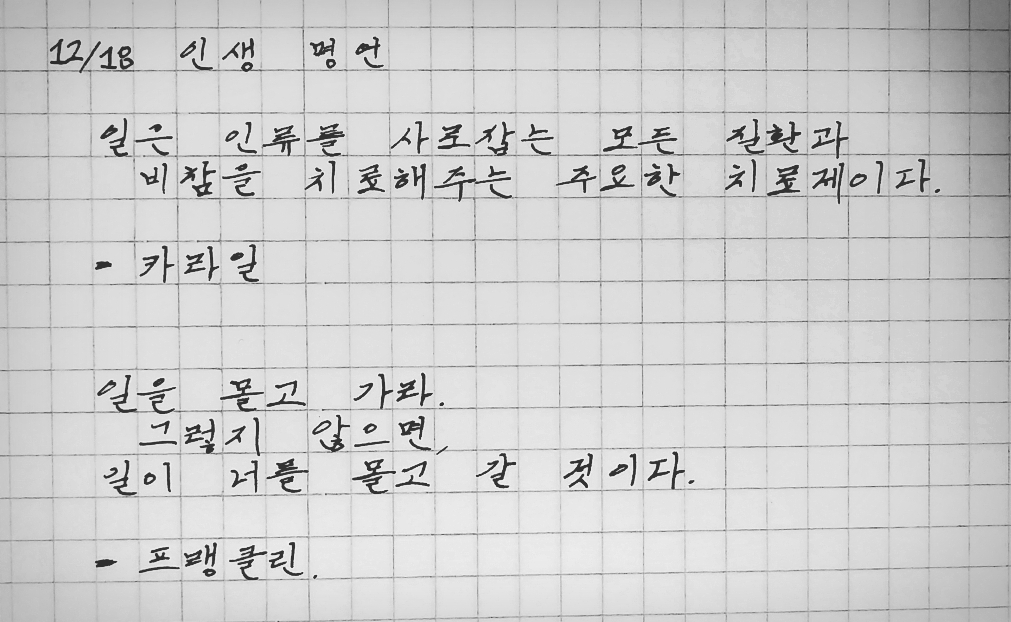 12/18 인생 명언
일은 인류를 사로잡는 모든 질환과
비참을 치료해주는 주요한 치료제이다.
- 카라일
일을 몰고 가라.
그렇지 않으면,
일이 너를 몰고 갈 것이다.
- 프랭클린.